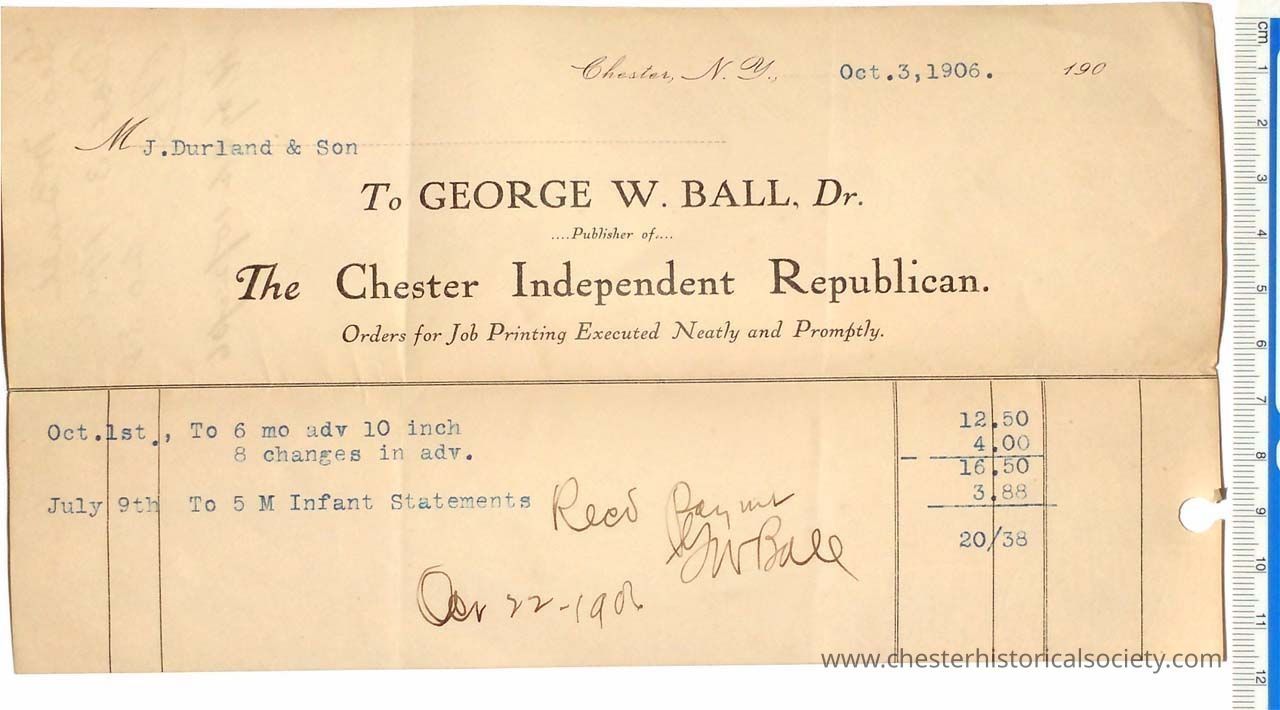 Chester, N. Y., Oct.3,1906. 190
M J.Durland & Son
To GEORGE W. BALL, Dr.
....Publisher of....
The Chester Independent Republican.
Orders for Job Printing Executed Neatly and Promptly.
Oct.1st., To 6 mo adv 10 inch 12.50
8 changes in adv. 4.00
16.50
July 9th To 5 M Infant Statements 3.88
Recd Paymt
20/38
GWBall
Oct 22-1906
www.chesterhistoricalsociety.com
cm
1
2
3
4
5
6
7
8
9
10
11
12